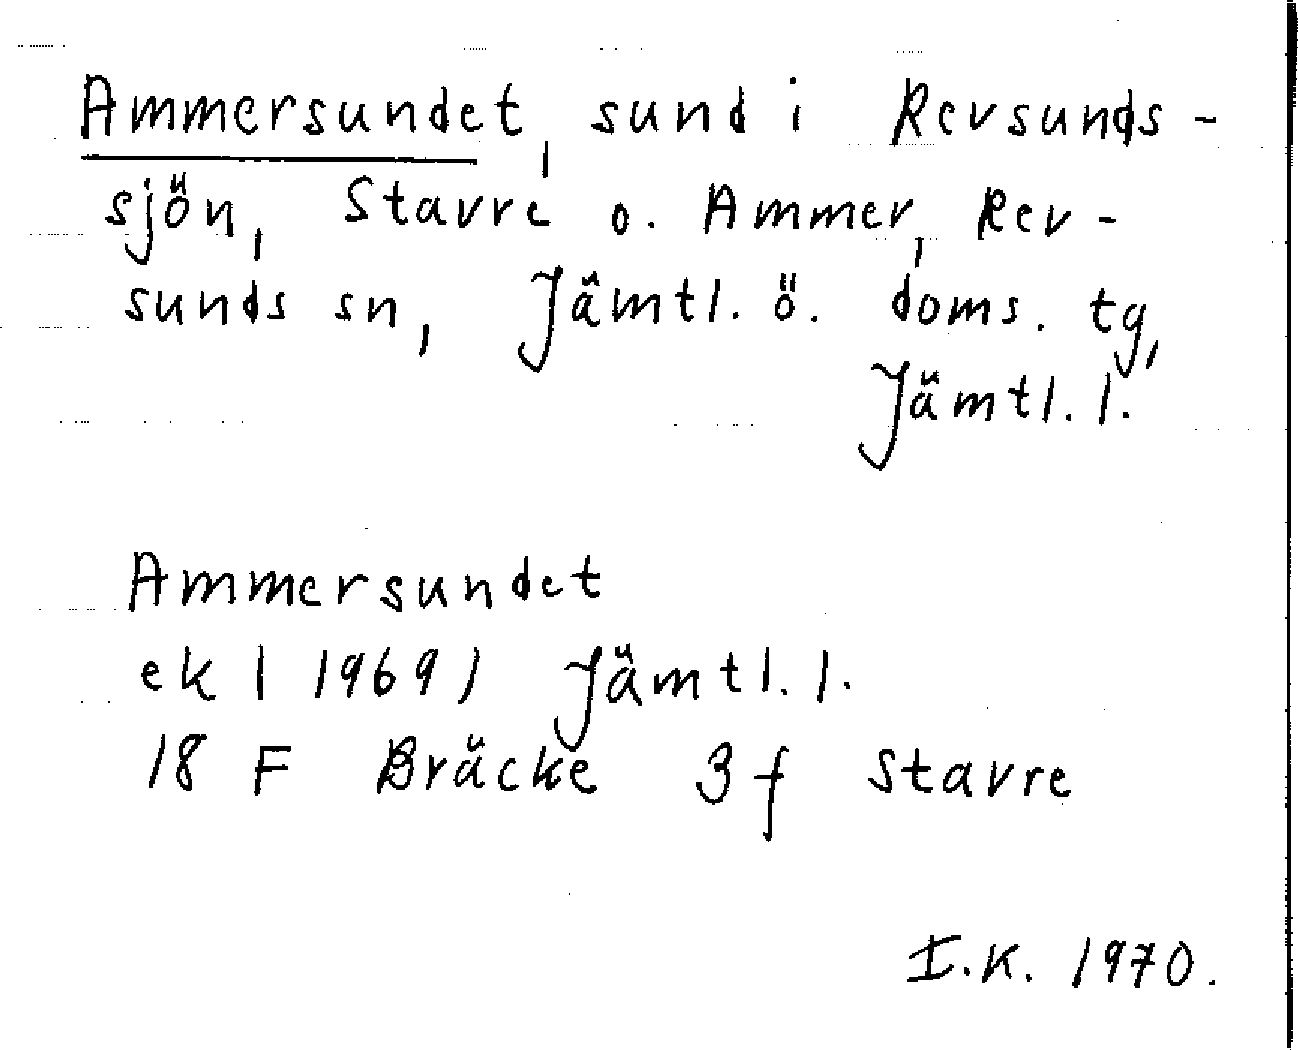 Ammersundet, sund i Revsunds-
sjön, Stavre o. Ammer, Rev-
sunds sn, Jämtl. ö. doms. tg,
Jämtl. l.
Ammersundet
ek (1969) Jämtl. l.
18 F Bräcke 3 f Stavre
I.K. 1970.